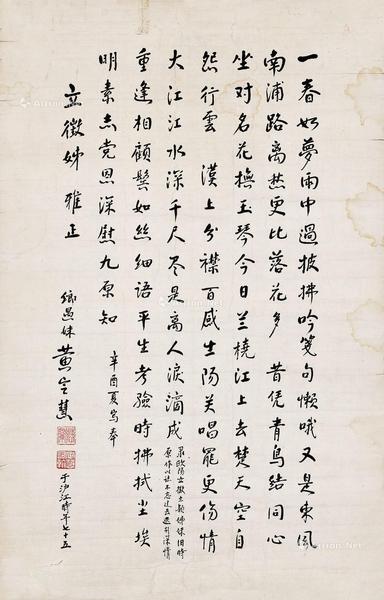 一春如夢雨中過披拂吟箋句懶哦又是東風
南浦路離愁更比落花多 昔凭青鳥結同心
坐对名花撫玉琴今日兰橈江上去楚天空自
怨行雲 漢上分襟百感生陽关唱罷更伤情
大江江水深千尺尽是離人淚滴成
重逢相顧鬓如丝细语平生考验時拂拭尘埃
明素志党恩深慰九原知
辛酉夏寫奉
立徵姊 雅正
鄉愚妹黄定慧
于沪江時年七十五